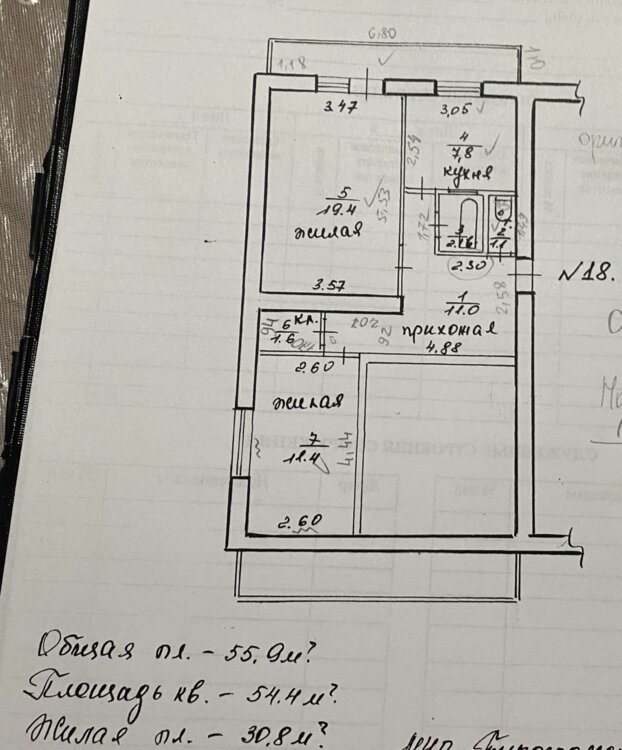 6,80
1,18
1,10
3.47
3,05
4
7,8
кухня
2,54
5
19.4
5,53
жилая
1,72
3
2.16
2
1.1
1,49
2.30
3.57
№18.
1
11.0
2,58
прихожая
4.88
6
кл.
1.6
94
2,02
92
2.60
жилая
7
11.4
4,44
2.60
Общая пл. - 55,9м²
Площадь кв. - 54.4м²
Жилая пл. - 30.8м²